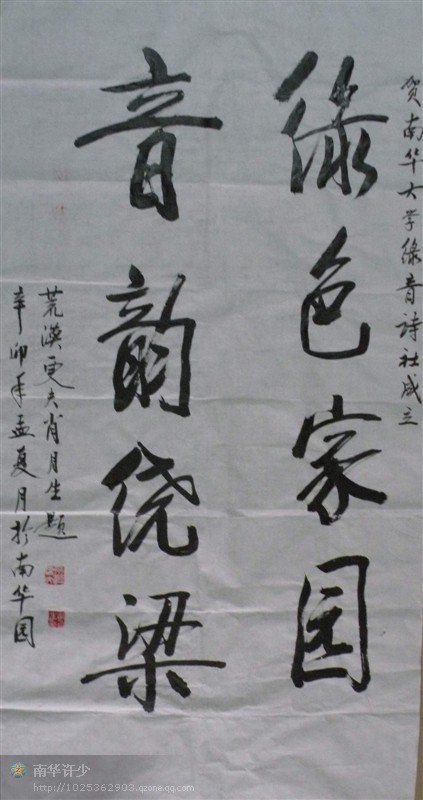 贺南华大学绿音詩社成立
绿色家园
音韵绕梁
荒漠更夫肖月生题
辛卯年孟夏月於南华园
南华许少
http://1025362903.qzone.qq.com